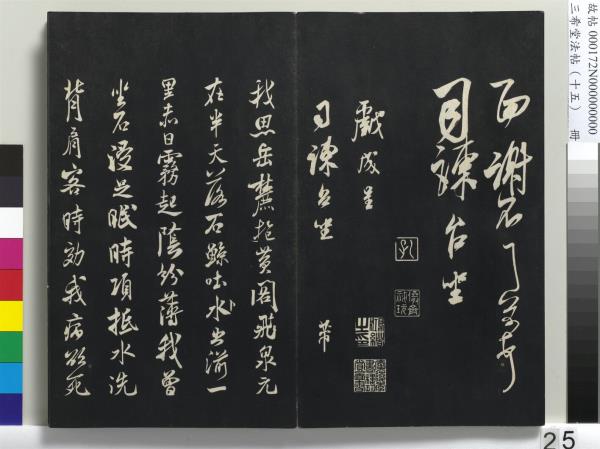 故帖 000172N000000000
三希堂法帖（十五） 冊
面謝不
司諫台坐
戲成呈
司諫台坐 芾
我思岳麓抱黃閣飛泉元
在半天落石鯨吐水出湔一
里赤日霧起陰紛薄我曾
坐石浸足眠時項抵水洗
背肩客時效我病欲死
25